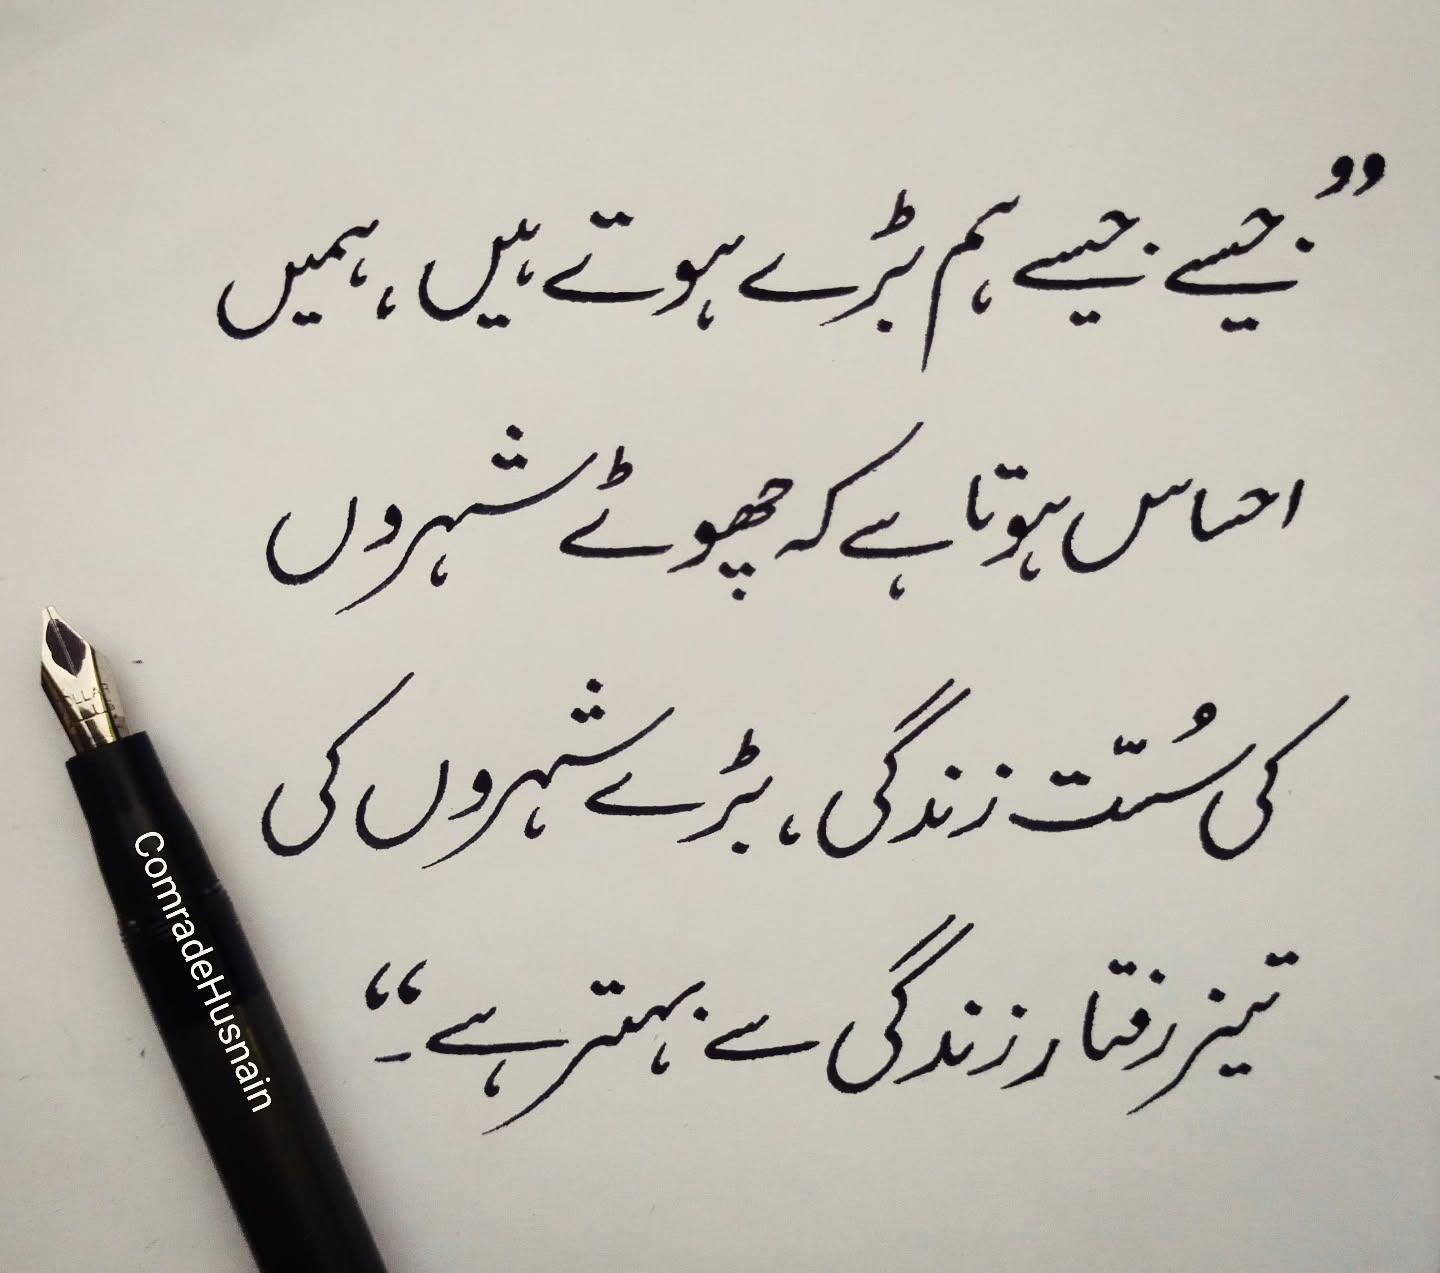 ”جیسے جیسے ہم بڑے ہوتے ہیں، ہمیں
احساس ہوتا ہے کہ چھوٹے شہروں
کی سُست زندگی، بڑے شہروں کی
تیز رفتار زندگی سے بہتر ہے۔“
ComradeHusnain